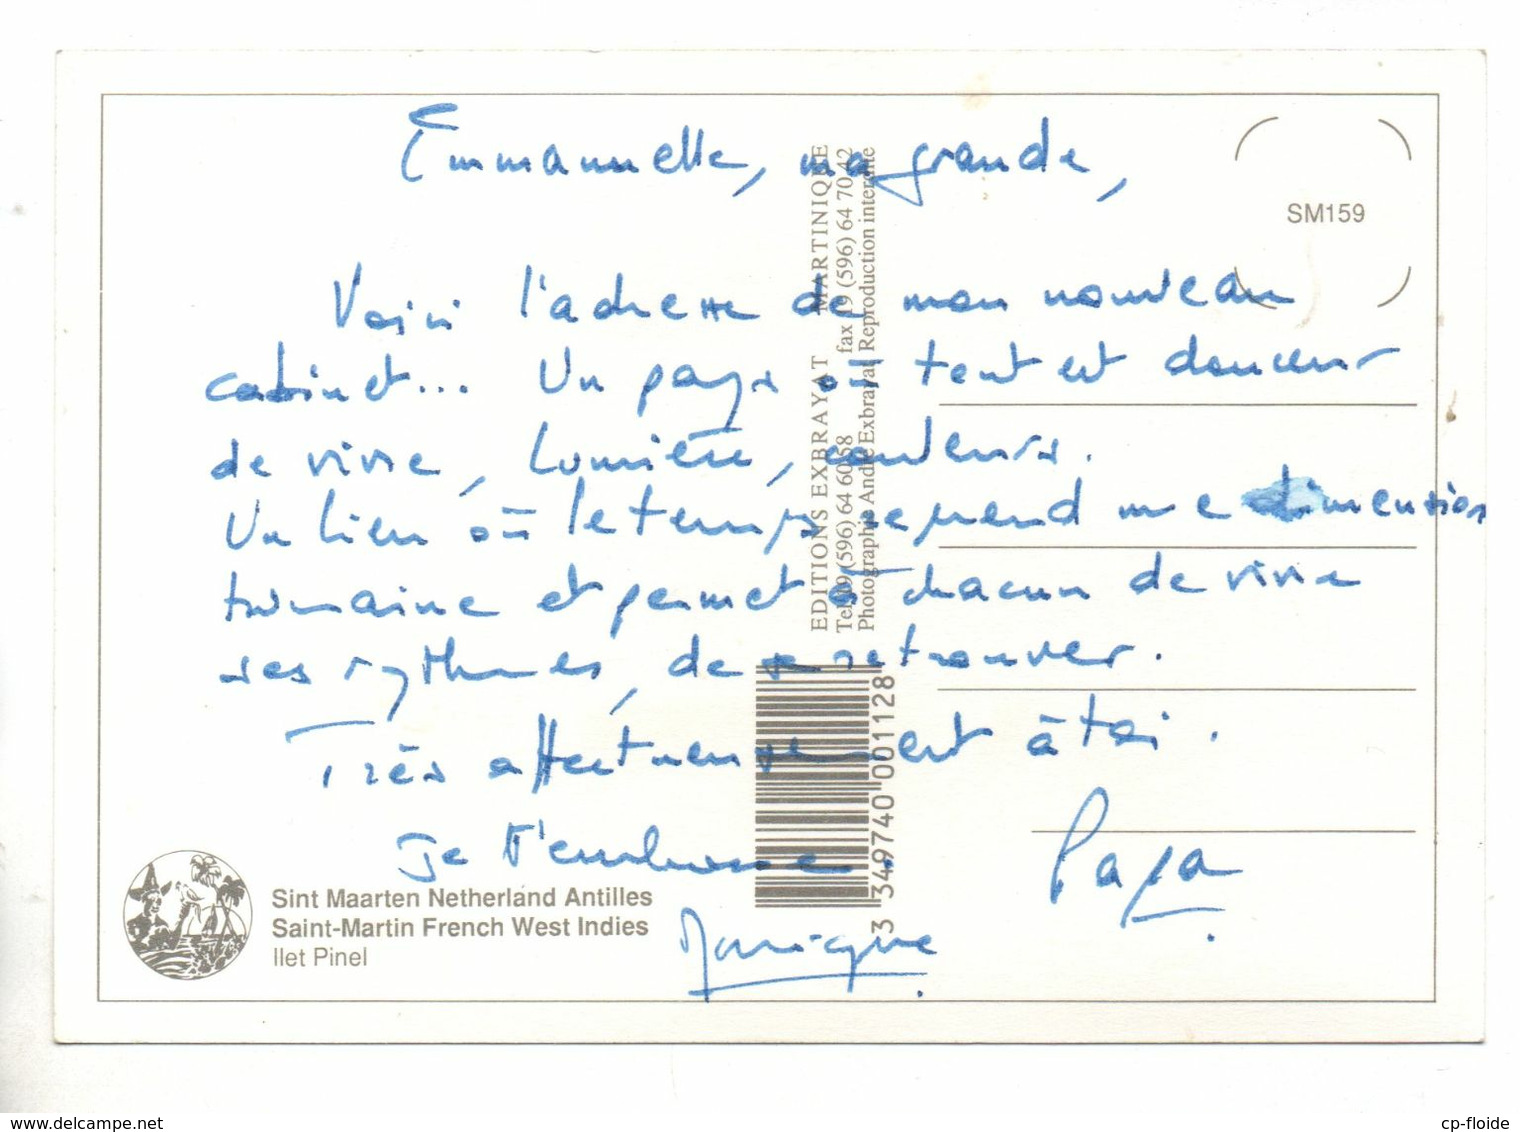 Emmanuelle, ma grande,
SM159
Voici l'adresse de mon nouveau
cabinet... Un pays où tout est douceur
de vivre, lumière, couleurs.
Un lieu où le temps reprend une dimension
humaine et permet à chacun de vivre
ses rythmes, de se retrouver.
Très affectueusement à toi.
Je t'embrasse.
Papa
Monique
EDITIONS EXBRAYAT MARTINIQUE
Tel 19 (596) 64 60 58 fax 19 (596) 64 70 42
Photographie André Exbrayat Reproduction interdite
3 349740 001128
Sint Maarten Netherland Antilles
Saint-Martin French West Indies
Ilet Pinel
the-best-collection-of-postcards-delcampe.net
cp-floide